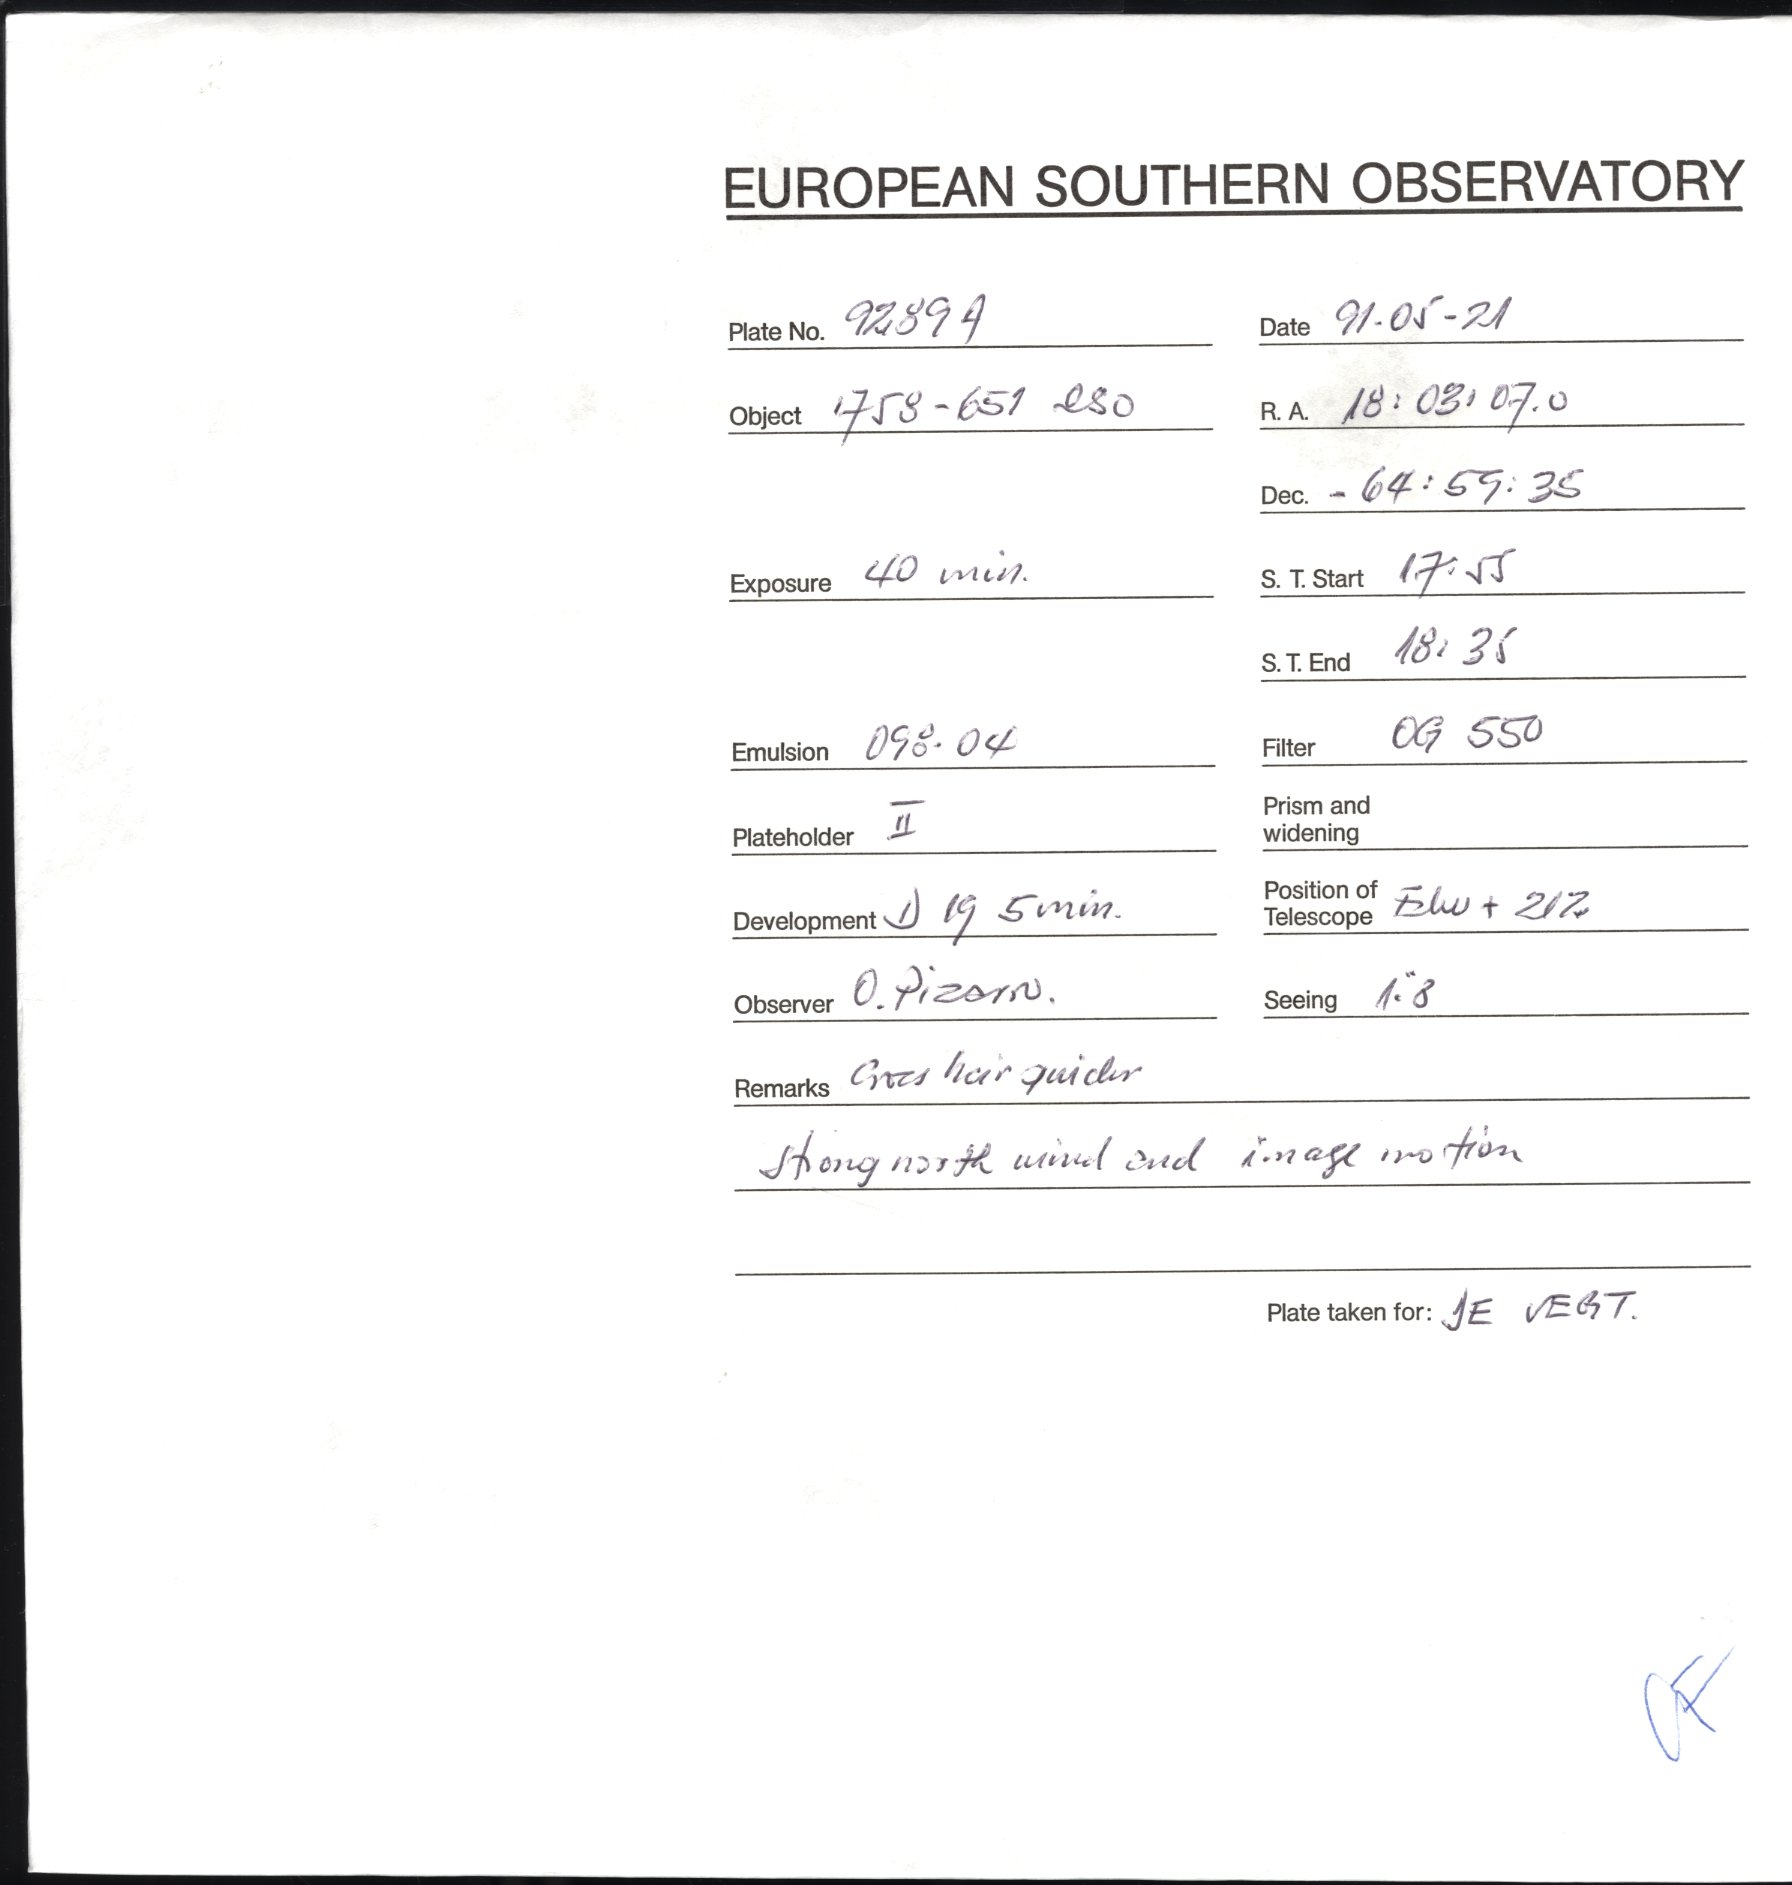 EUROPEAN SOUTHERN OBSERVATORY
Plate No. 9289A Date 91-05-21
Object 1758-651 QSO R. A. 18:03:07.0
Dec. -64:59:35
Exposure 40 min. S. T. Start 17:55
S. T. End 18:35
Emulsion 098-04 Filter OG 550
Plateholder II Prism and
widening
Development D 19 5 min. Position of
Telescope + 212
Observer O. Pizarro. Seeing 1."8
Remarks Cross hair guider
Strong north wind and image motion
Plate taken for: DE VEGT.